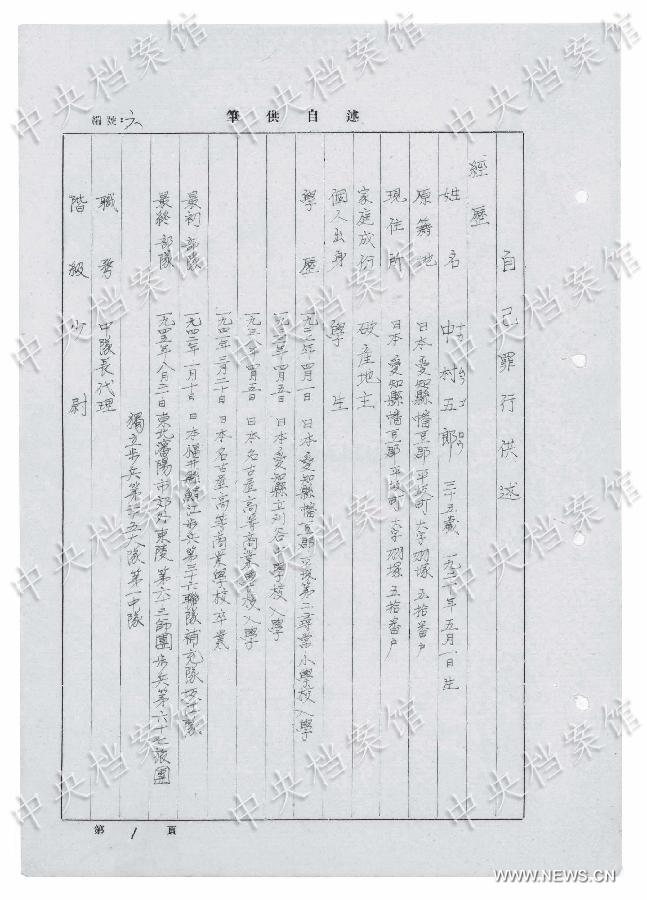 編號:六
筆供自述
自己罪行供述
經歷
姓名 中村五郎 三十五歲 一九二一年五月一日生
原籍地 日本愛知縣幡豆郡平坂町大字羽塚五拾番戶
現住所 日本愛知縣幡豆郡平坂町大字羽塚五拾番戶
家庭成份 破產地主
個人出身 學生
學歷 日本愛知縣幡豆郡平坂第二尋常小學校入學
四月五日 日本愛知縣立刈谷中學校入學
日本名古屋高等商業學校入學
三月二十日 日本名古屋高等商業學校卒業
最初部隊 一九四二年一月十日 日本福井縣鯖江步兵第三十六聯隊補充隊
最終部隊 一九四五年八月二一日東北瀋陽市郊外東陵第六三師團步兵第六十七旅團
獨立步兵第 大隊第一中隊
職務 中隊長代理
階級 少尉
第1頁
中央档案馆
WWW.NEWS.CN